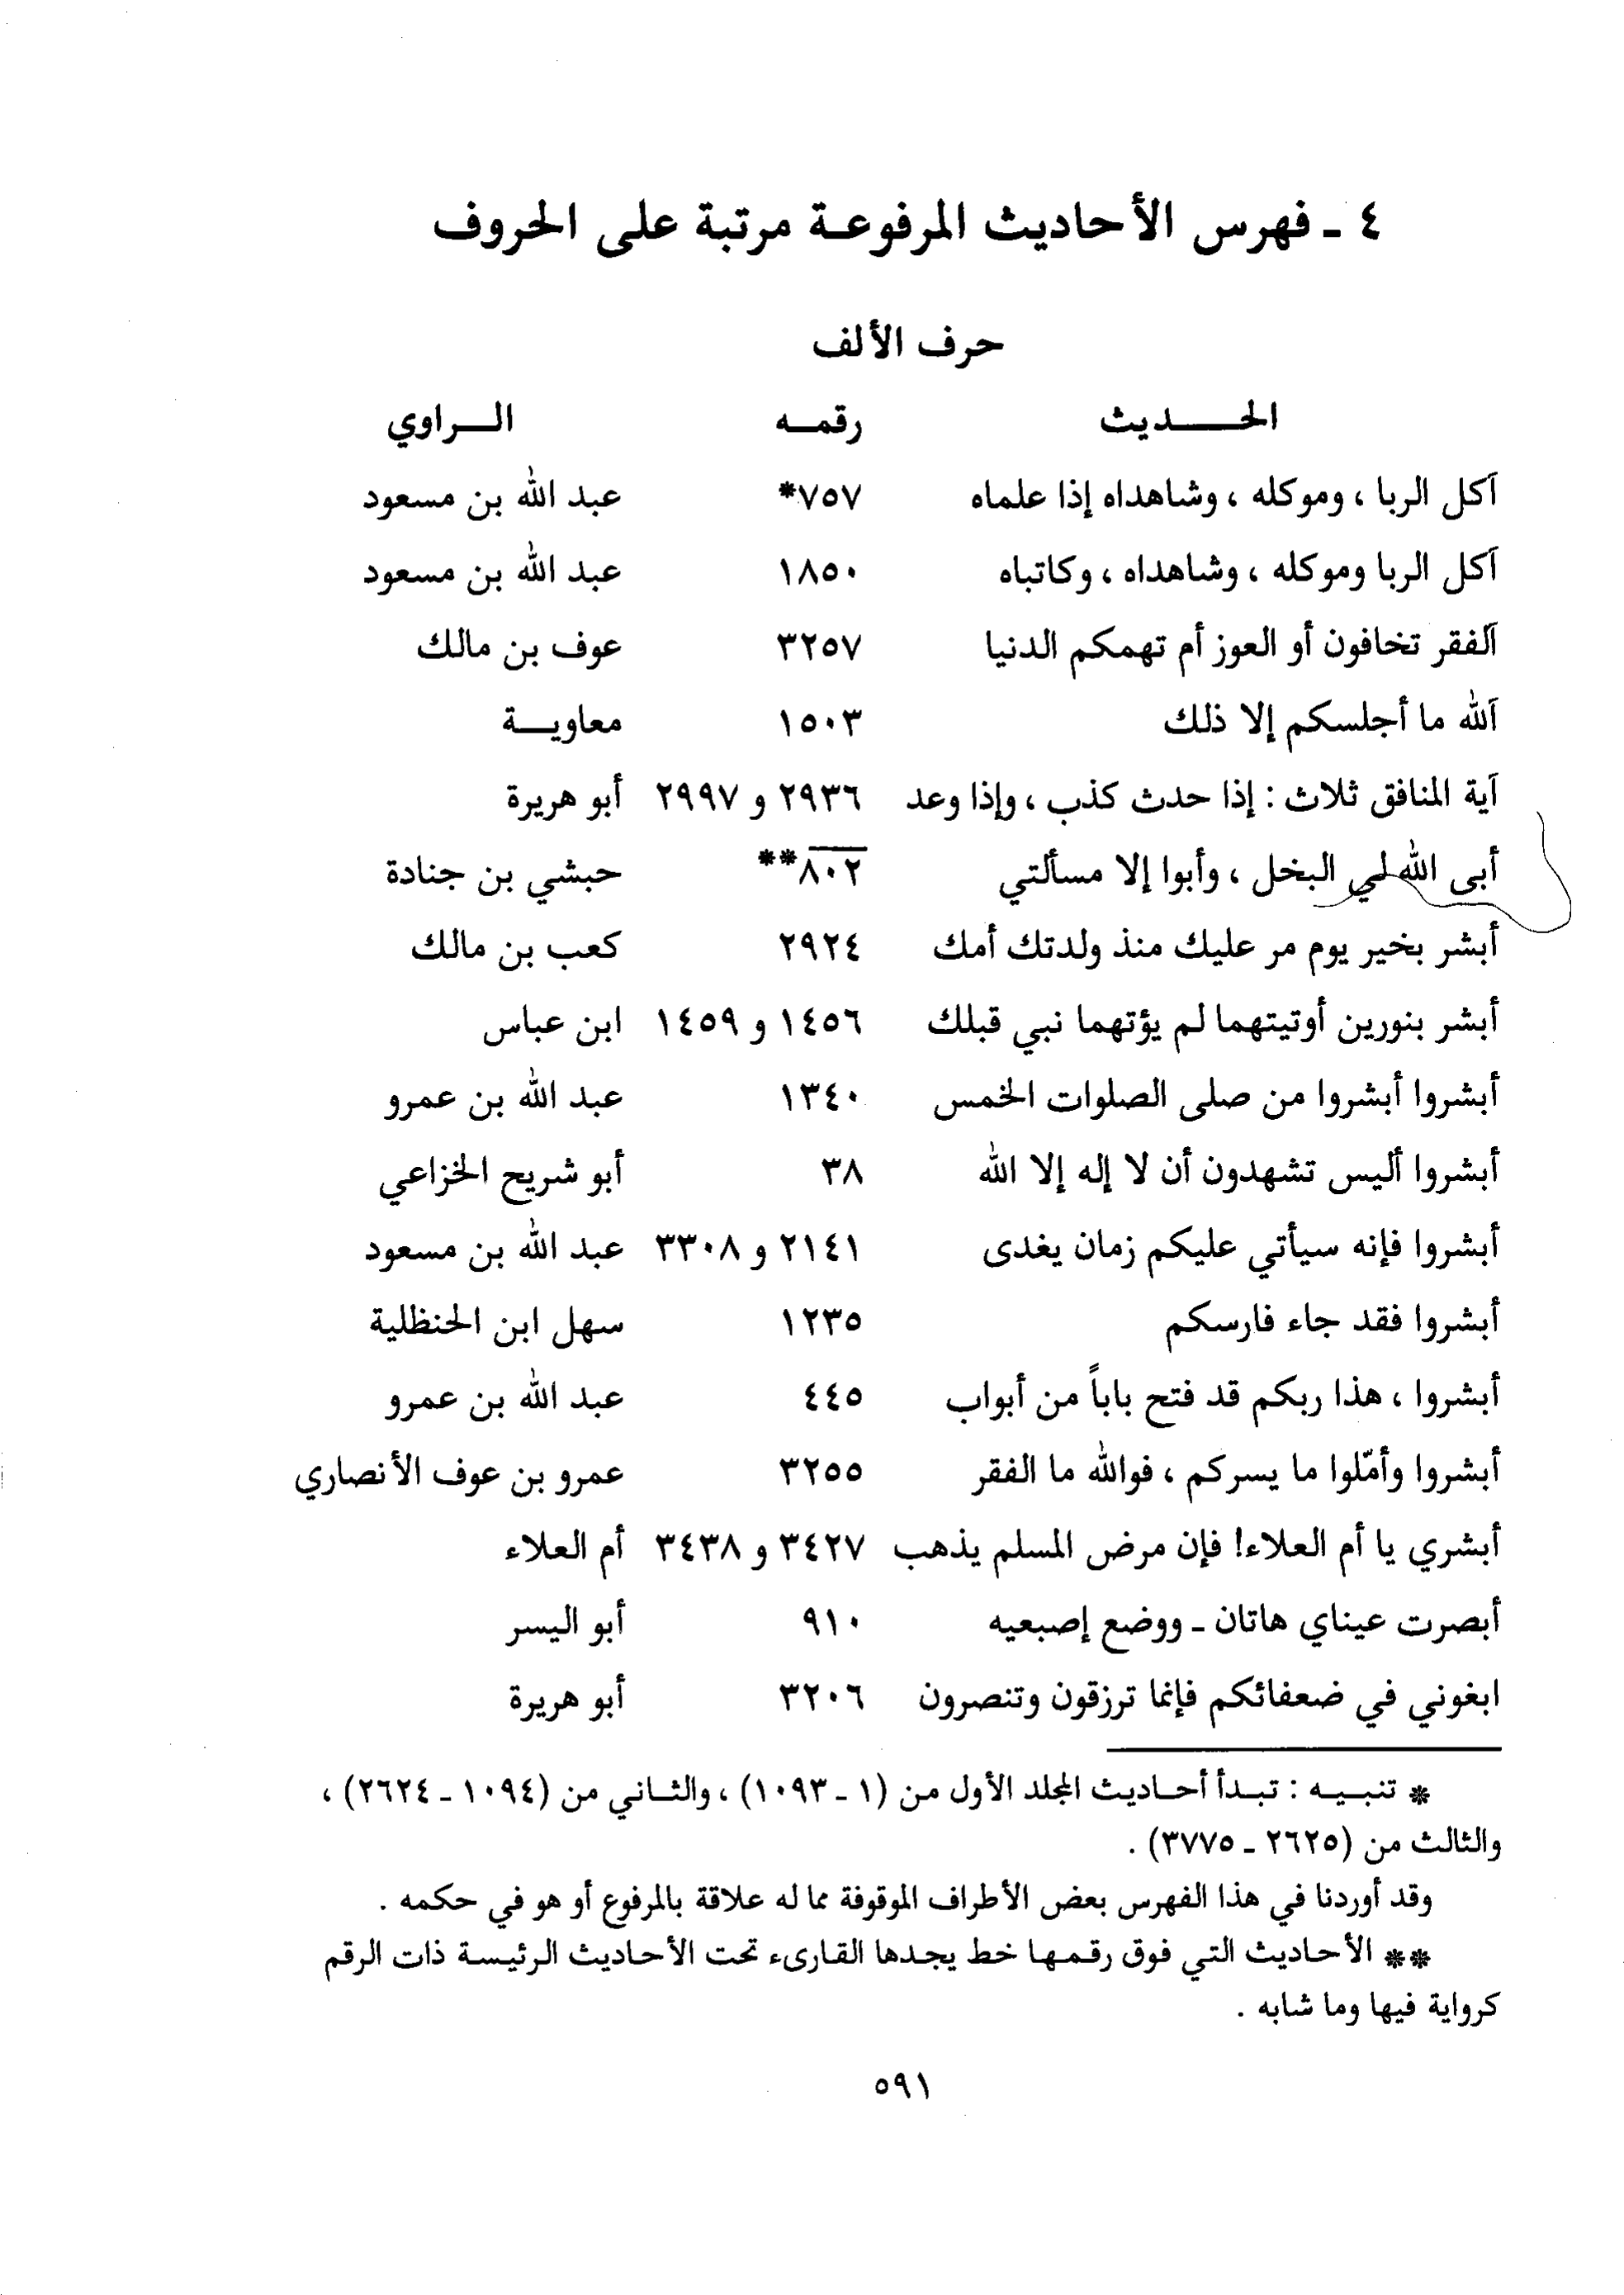 ٤ ـ فهرس الأحاديث المرفوعة مرتبة على الحروف
حرف الألف
الحـــديث رقمـه الـراوي
آكل الربا ، وموكله ، وشاهداه إذا علماه ٧٥٧* عبد الله بن مسعود
آكل الربا وموكله ، وشاهداه ، وكاتباه ١٨٥٠ عبد الله بن مسعود
آلفقر تخافون أو العوز أم تهمكم الدنيا ٣٢٥٧ عوف بن مالك
آلله ما أجلسكم إلا ذلك ١٥٠٣ معاويـة
آية المنافق ثلاث : إذا حدث كذب ، وإذا وعد ٢٩٣٦ و ٢٩٩٧ أبو هريرة
أبى الله لي البخل ، وأبوا إلا مسألتي ٨٠٢** حبشي بن جنادة
أبشر بخير يوم مر عليك منذ ولدتك أمك ٢٩٢٤ كعب بن مالك
أبشر بنورين أوتيتهما لم يؤتهما نبي قبلك ١٤٥٦ و ١٤٥٩ ابن عباس
أبشروا أبشروا من صلى الصلوات الخمس ١٣٤٠ عبد الله بن عمرو
أبشروا أليس تشهدون أن لا إله إلا الله ٣٨ أبو شريح الخزاعي
أبشروا فإنه سيأتي عليكم زمان يغدى ٢١٤١ و ٣٣٠٨ عبد الله بن مسعود
أبشروا فقد جاء فارسكم ١٢٣٥ سهل ابن الحنظلية
أبشروا ، هذا ربكم قد فتح باباً من أبواب ٤٤٥ عبد الله بن عمرو
أبشروا وأمّلوا ما يسركم ، فوالله ما الفقر ٣٢٥٥ عمرو بن عوف الأنصاري
أبشري يا أم العلاء! فإن مرض المسلم يذهب ٣٤٢٧ و ٣٤٣٨ أم العلاء
أبصرت عيناي هاتان ـ ووضع إصبعيه ٩١٠ أبو اليسر
ابغوني في ضعفائكم فإنما ترزقون وتنصرون ٣٢٠٦ أبو هريرة
* تنبيـه : تبدأ أحاديث المجلد الأول من (١ ـ ١٠٩٣) ، والثاني من (١٠٩٤ ـ ٢٦٢٤) ،
والثالث من (٢٦٢٥ ـ ٣٧٧٥) .
وقد أوردنا في هذا الفهرس بعض الأطراف الموقوفة مما له علاقة بالمرفوع أو هو في حكمه .
** الأحاديث التي فوق رقمها خط يجدها القارىء تحت الأحاديث الرئيسة ذات الرقم
كرواية فيها وما شابه .
٥٩١